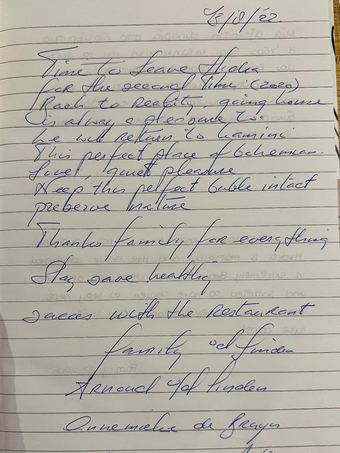 13/8/'22
Time to leave Hydra
for the second time (2020)
Back to reality, going house
is alway a pleasure to.
We will return to
This perfect place of bohemian.
Love, quiet pleasure
Keep this perfect buble intact
preserve nature
Thanks family for everything
Stay save healthy
succes with the restaurant
family v/d Linden
Arnoud v/d Linden
Annemieke de Bruyn